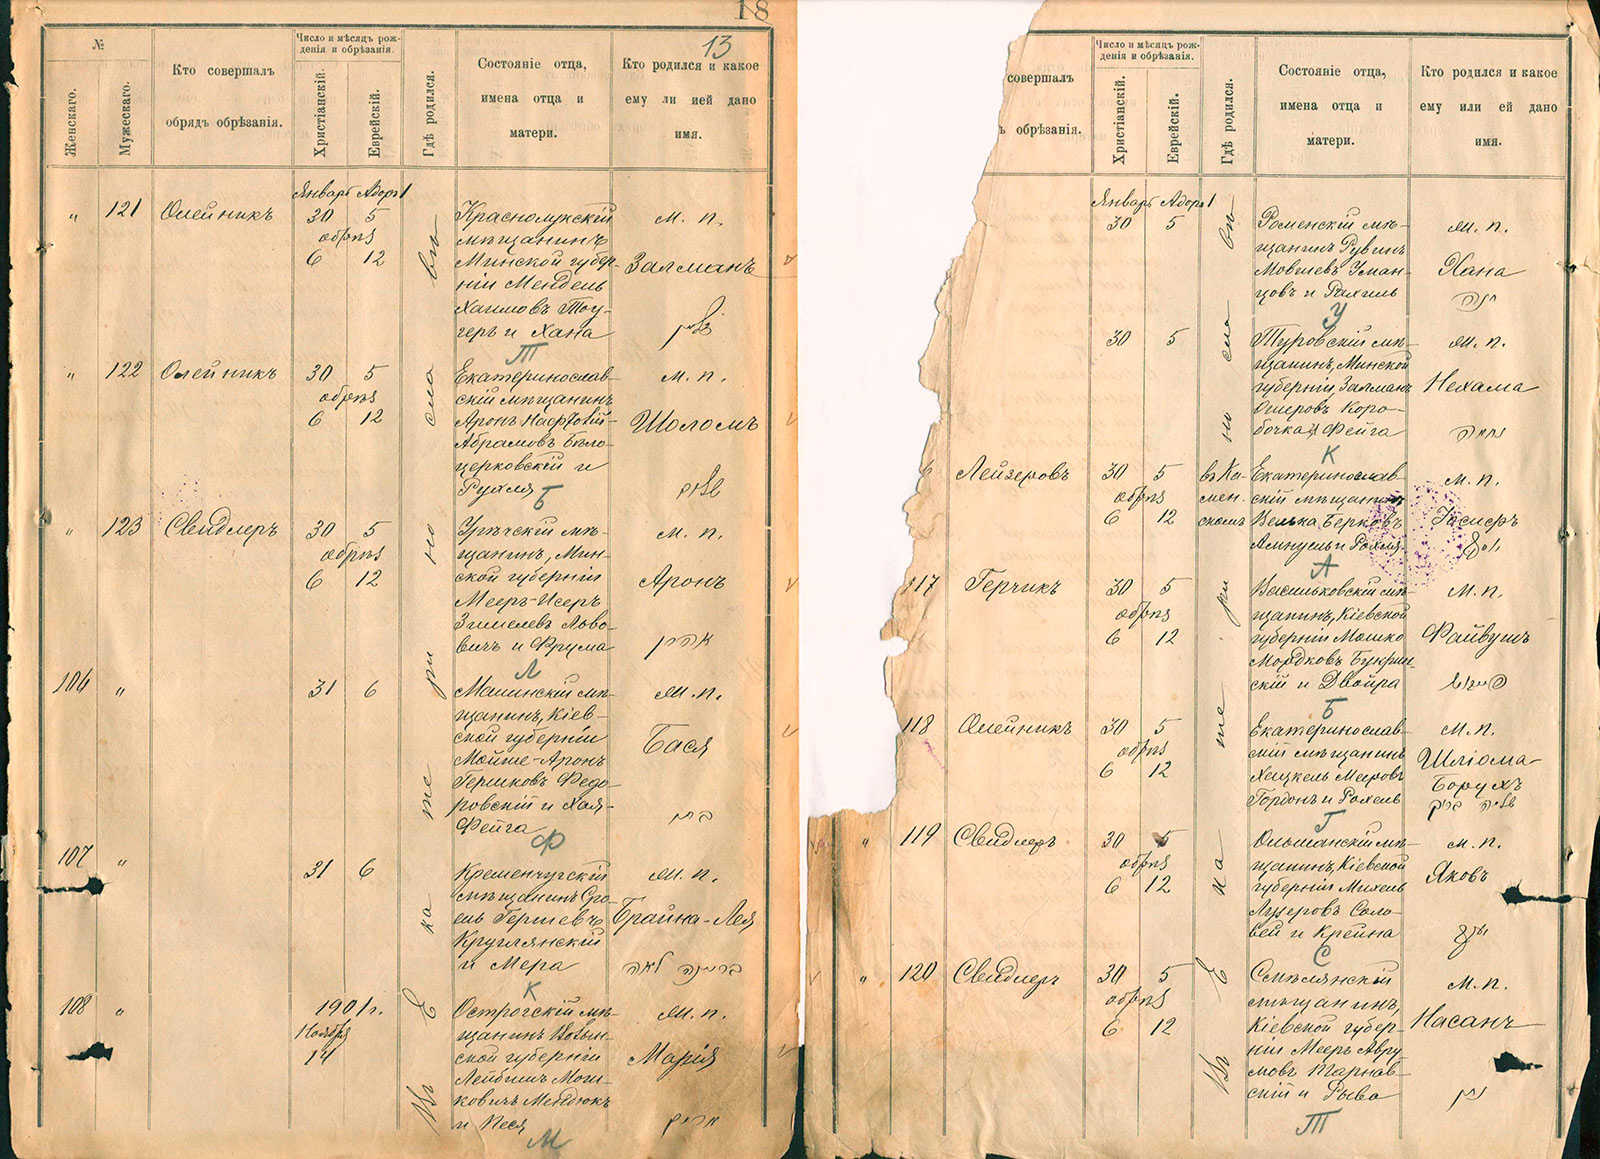 18
13
№
Женскаго.
Мужескаго.
Кто совершалъ
обрядъ обрѣзанія.
Число и мѣсяцъ рож-
денія и обрѣзанія.
Христіанскій.
Еврейскій.
Гдѣ родился.
Состояніе отца,
имена отца и
матери.
Кто родился и какое
ему ли ией дано
имя.
Въ Екатеринославѣ
Январь Адоръ 1
„ 121 Олейникъ
30 5
обрѣз
6 12
Красполукскій
мѣщанинъ
Минской губер-
ніи Мендель
Хаимовъ Тоу-
геръ и Хана
Т
м. п.
Залманъ
זלמן
„ 122 Олейникъ
30 5
обрѣз
6 12
Екатеринослав-
скій мѣщанинъ
Аронъ Нафтолій
Абрамовъ Бѣло-
церковскій и
Рухля
Б
м. п.
Шоломъ
שלום
„ 123 Свидлеръ
30 5
обрѣз
6 12
Урѣчскій мѣ-
щанинъ, Мин-
ской губерніи
Мееръ-Исеръ
Зимелевъ Льво-
вичъ и Фрума
Л
м. п.
Аронъ
אהרן
106 „
31 6
мѣ-
щанинъ, Кіев-
ской губерніи
Мойше-Аронъ
Гершковъ Федо-
ровскій и Хая-
Фейга
Ф
м. п.
Бася
107 „
31 6
Кременчугскій
мѣщанинъ Сро-
ель Гершевъ
Круглянскій
и Мера
К
м. п.
Брайна-Лея
בריינה לאה
108 „
1901 г.
Ноября
14
Острогскій мѣ-
щанинъ Волын-
ской губерніи
Лейбишъ Мош-
ковичъ Мендюкъ
и Песя
М
м. п.
Марія
מרים
совершалъ
ъ обрѣзанія.
Число и мѣсяцъ рож-
денія и обрѣзанія.
Христіанскій.
Еврейскій.
Гдѣ родился.
Состояніе отца,
имена отца и
матери.
Кто родился и какое
ему или ей дано
имя.
Въ Екатеринославѣ
Январь Адоръ 1
30 5
Роменскій мѣ-
щанинъ Рувинъ
Мовшевъ Уман-
цовъ и Рахиль
У
м. п.
Хана
חנה
30 5
Туровскій мѣ-
щанинъ, Минской
губерніи, Залманъ
Ошеровъ Коро-
бочка и Фейга
К
м. п.
Нехама
נחמה
6 Лейзеровъ
30 5
обрѣз
6 12
въ Ка-
мен-
скомъ
Екатеринослав-
скій мѣщанинъ
Велька Берковъ
Ампуль и Рохля
А
м. п.
Іосифъ
יוסף
117 Герчикъ
30 5
обрѣз
6 12
Васильковскій мѣ-
щанинъ, Кіевской
губерніи Мошко
Мордковъ Букрин-
скій и Двойра
Б
м. п.
Файвушъ
118 Олейникъ
30 5
обрѣз
6 12
Екатеринослав-
скій мѣщанинъ
Хацкель Мееровъ
Гордонъ и Рохель
Г
м. п.
Шліома
Борухъ
שלמה ברוך
„ 119 Свидлеръ
30 5
обрѣз
6 12
Ольшанскій мѣ-
щанинъ, Кіевской
губерніи Михель
Лузеровъ Соло-
вей и Крейна
С
м. п.
Яковъ
יעקב
„ 120 Свидлеръ
30 5
обрѣз
6 12
Смѣлянскій
мѣщанинъ,
Кіевской губер-
ніи Мееръ Авру-
мовъ Тарнав-
скій и Рыва
Т
м. п.
Насанъ
נתן